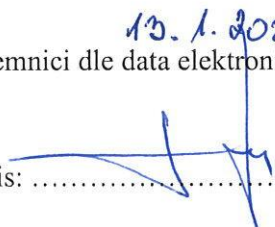 13. 1. 202
emnici dle data elektron
is: ........................